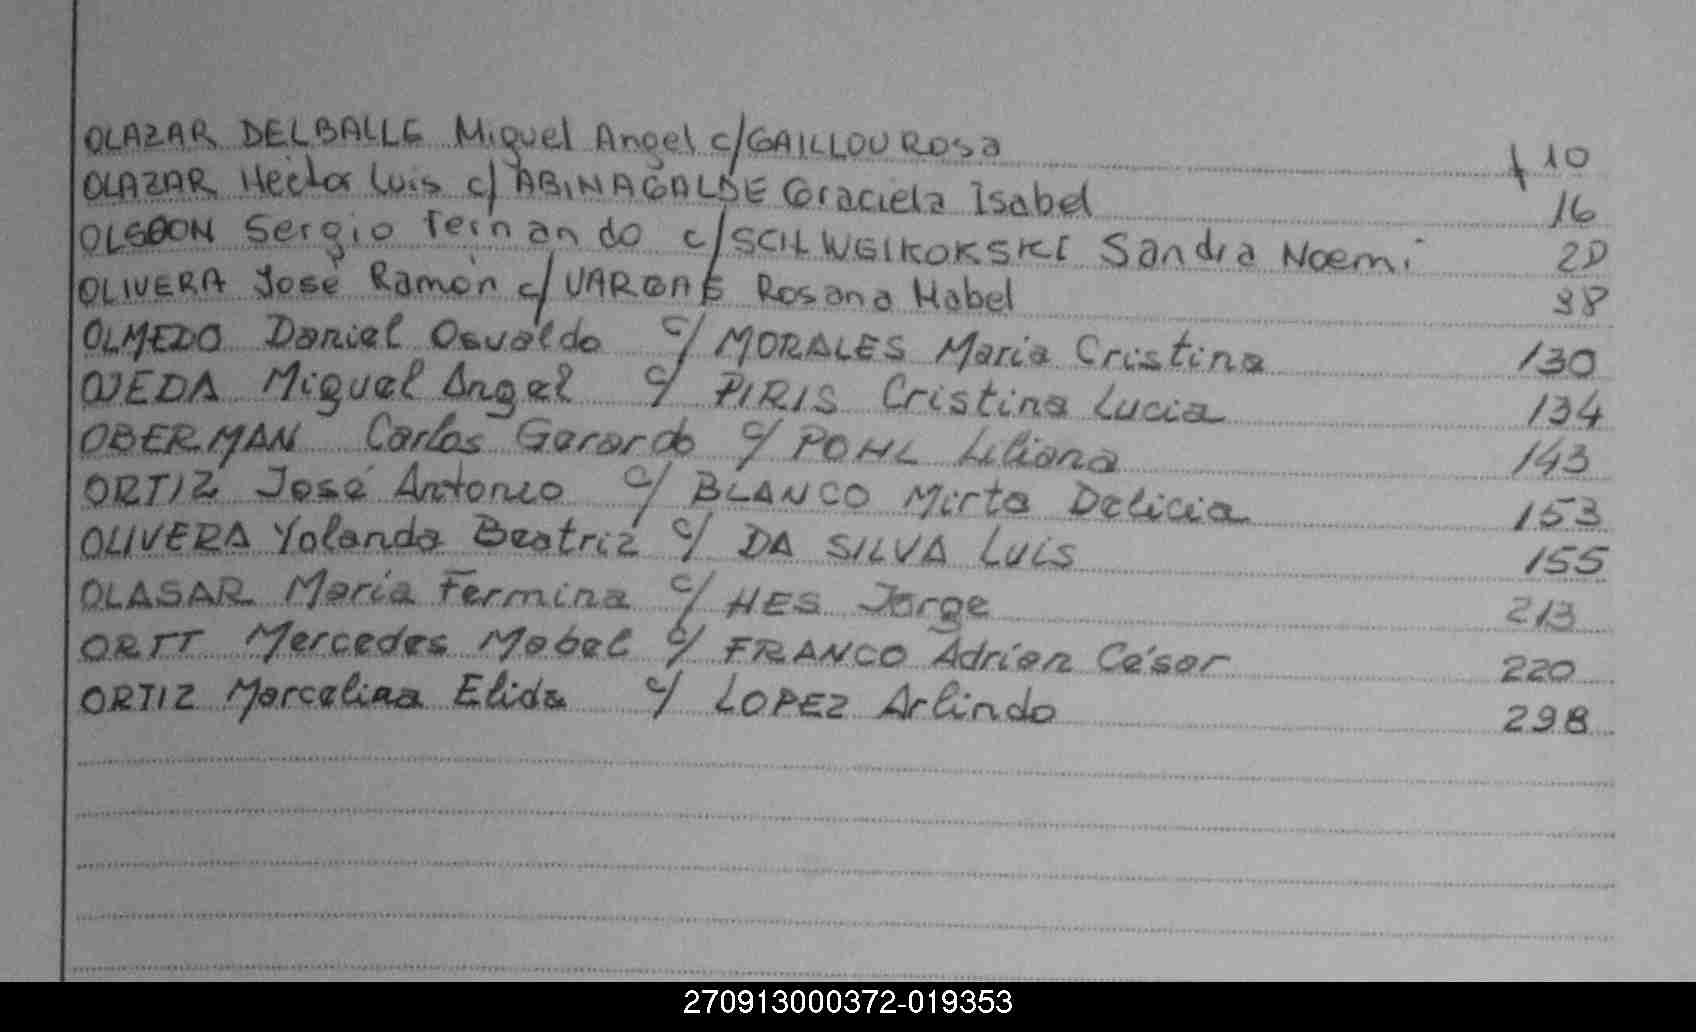 OLAZAR DELBALLE Miguel Angel c/GAILLOU Rosa f 10
OLAZAR Héctor Luis c/ ABINAGALDE Graciela Isabel 16
OLSOON Sergio Fernando c/SCHWEIKOKSKI Sandra Noemi 20
OLIVERA José Ramón c/ VARGAS Rosana Mabel 38
OLMEDO Daniel Osvaldo c/ MORALES Maria Cristina 130
OJEDA Miguel Angel c/ PIRIS Cristina Lucia 134
OBERMAN Carlos Gerardo c/ POHL Liliana 143
ORTIZ José Antonio c/ BLANCO Mirta Delicia 153
OLIVERA Yolanda Beatriz c/ DA SILVA Luis 155
OLASAR María Fermina c/ HES Jorge 213
ORTT Mercedes Mabel c/ FRANCO Adrian César 220
ORTIZ Marcelina Elida c/ LOPEZ Arlindo 298
270913000372-019353